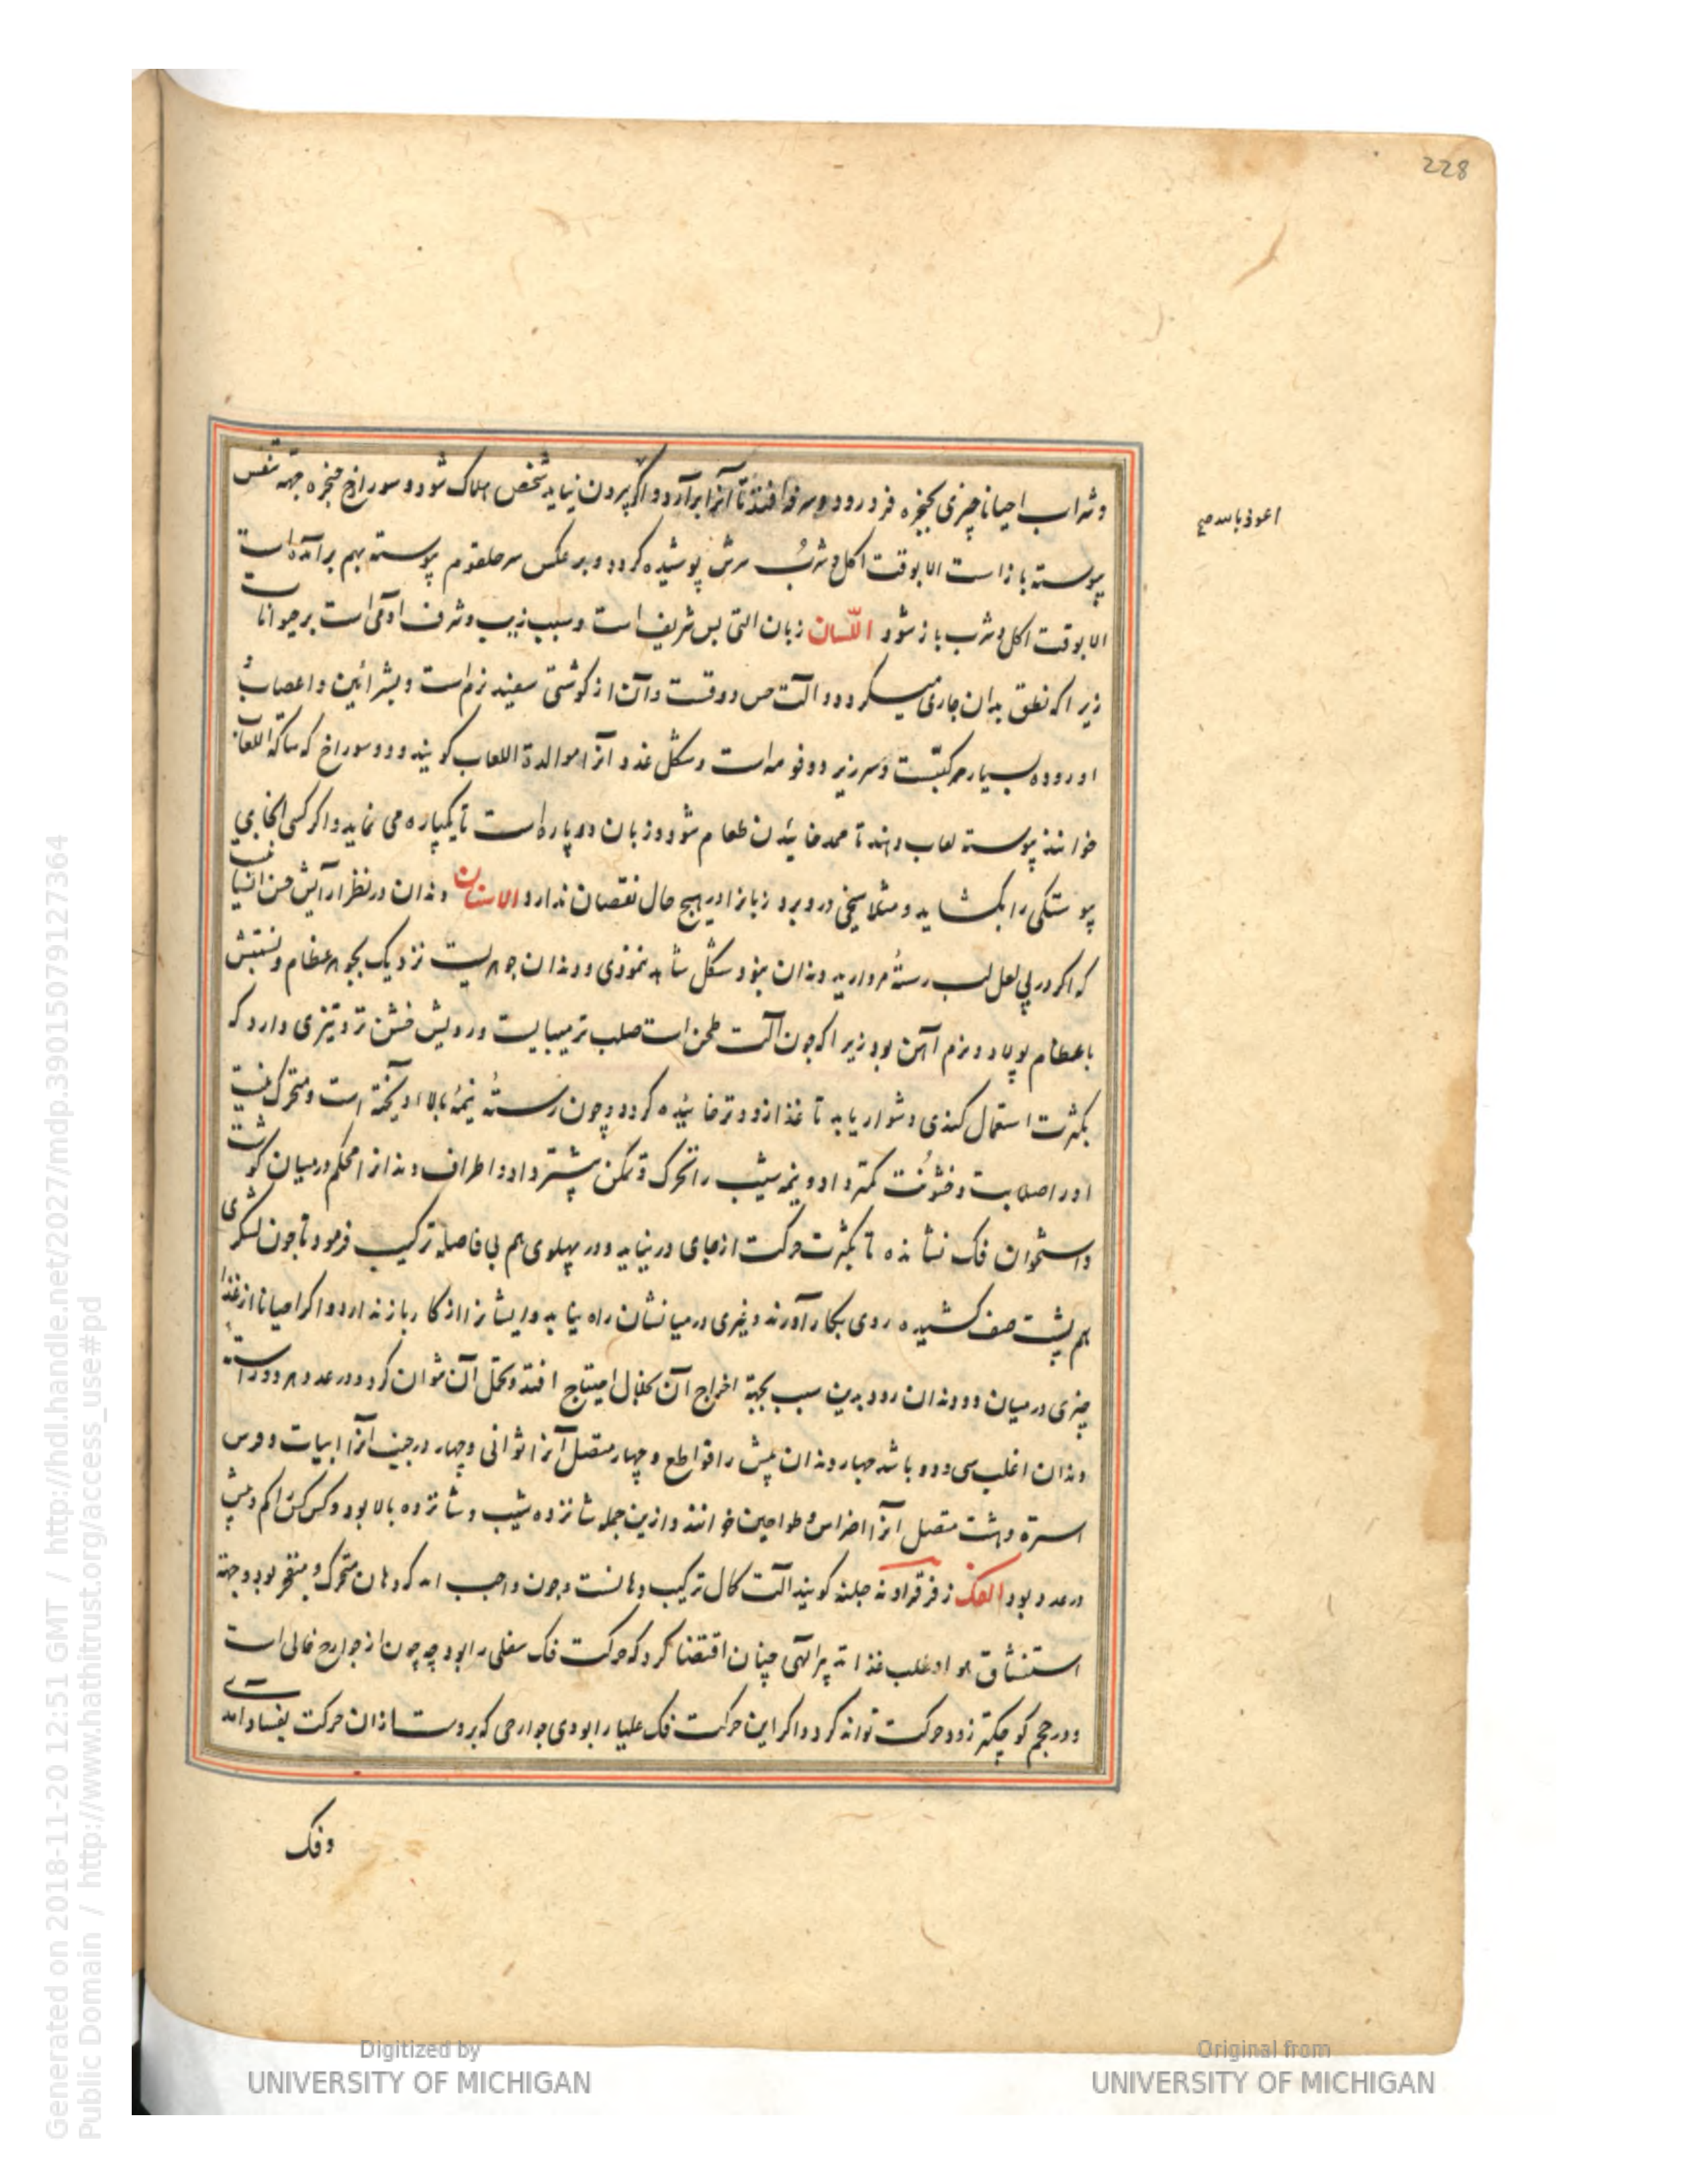 228
وشراب احیانا چیزی بحنجره فرو رود و سرفه افتد تا آنرا برآرد و اگر بیرون نیاید شخص هلاک شود و سوراخ حنجره جهة تنفس
اعوذ بالله صح
پیوسته باز است الا بوقت اکل و شرب سرش پوشیده کردد و بر عکس سر حلقوم پیوسته بهم برآمده است
الا بوقت اکل و شرب باز شود اللسان زبان التی بس شریف است و سبب زیب و شرف ادمی است بر حیوانات
زیرا که نطق بدان جاری میکردد و الت حس ذوقست و آن از کوشتی سفید نرم است و بشرائین و اعصاب
و اورده بسیار مرکبست و سر زیر دو فوهه است و شکل غدد آنرا موالدة اللعاب کویند و دو سوراخ که ساکبة اللعاب
خوانند پیوسته لعاب دهند تا ممد خائیدن طعام شود و زبان دو پاره است تا یکپاره می نماید و اکر کسی انجای
پیوستکی را بکشاید و مثلا میخی درو برد زبانرا در هیچ حال نقصان ندارد الاسنان دندان در نظر آرایش حسن انسان
که اکر در پی لعل لب رستهٔ مروارید دندان نبود شکل شاهد ننمودی و دندان جوهریست نزدیک بجوهر عظام و نسبتش
با عظام پولاد و نرم آهن بود زیرا که چون آلت طحن است صلب تر میبایست و رویش خشن تر و تیزی دارد که
بکثرت استعمال کندی دشوار یابد تا غذا زودتر خائیده کردد و چون رستهٔ نیمهٔ بالا آویخته است و متحرک نیست
او را صلابت و خشونت کمتر داد و نیمه شیب را تحرک و تمکن بیشتر داد و اطراف دندانرا محکم در میان کوشت
و استخوان فک نشانده تا بکثرت حرکت از جای در نیاید و در پهلوی هم بی فاصله ترکیب فرمود تا چون لشکری
هم پشت صف کشیده روی بکار آورند و غیری در میانشان راه نیابد و ایشانرا از کار باز ندارد و اکر احیانا از غذا
چیزی در میان دو دندان رود بدین سبب بجهة اخراج آن بخلال احتیاج افتد و تحمل آن توان کرد و در عدد هر دو رسته
دندان اغلب سی و دو باشد چهار دندان پیش را قواطع و چهار متصل آنرا ثوانی و چهار در جنب آنرا انیاب و دوس
استره و هشت متصل آنرا اضراس و طواحین خوانند و ازین جمله شانزده شیب و شانزده بالا بود و کس کس را کم و بیش
در عدد بود الحنک زفر قراونه جلنه کویند الت کمال ترکیب دهانست و چون واجب امد که دهان متحرک و منفخر بود و جهة
استنشاق هوا و طلب غذا تدبیر الهی چنان اقتضا کرد که حرکت فک سفلی را بود چه چون از جوارح خالی است
و در حجم کوچکتر زود حرکت تواند کرد و اکر این حرکت فک علیا را بودی جوارحی که بروست از ان حرکت بفساد امدی
وفک
Generated on 2018-11-20 12:51 GMT / http://hdl.handle.net/2027/mdp.39015079127364
Public Domain / http://www.hathitrust.org/access_use#pd
Digitized by
UNIVERSITY OF MICHIGAN
Original from
UNIVERSITY OF MICHIGAN